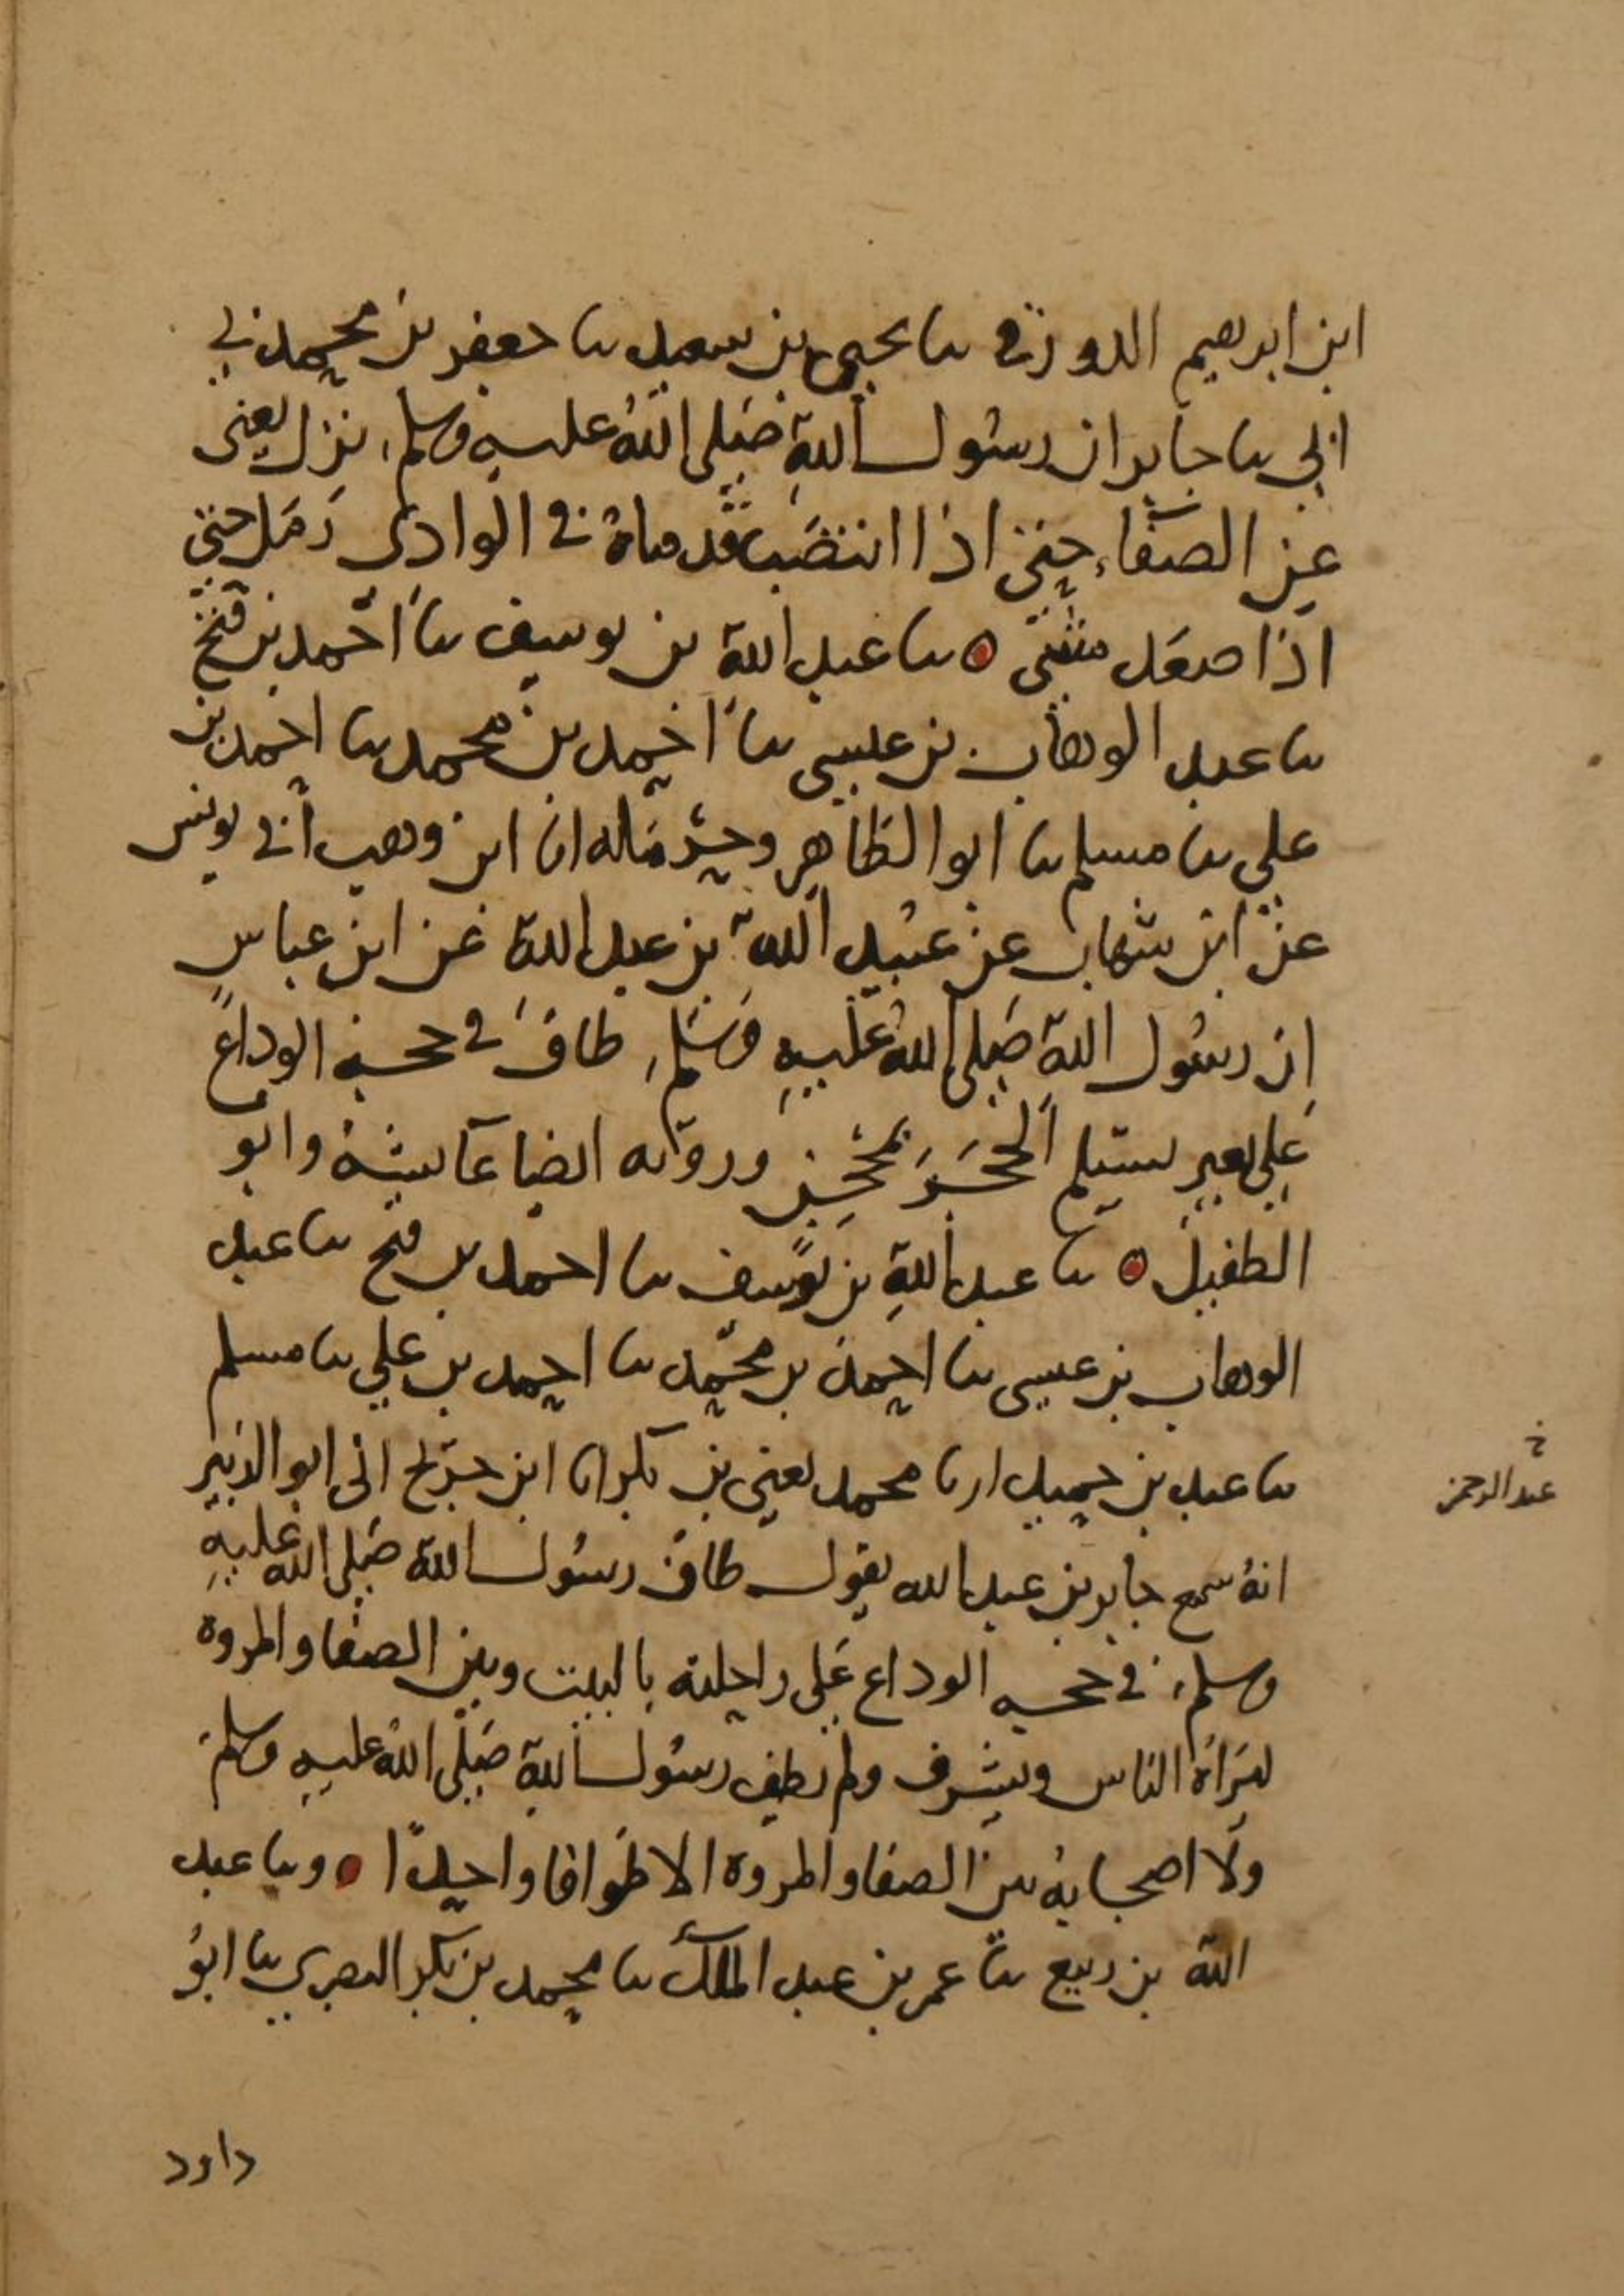 ابن ابرهيم الدورقي نا يحيى بن سعيد نا جعفر بن محمد ني
ابي نا جابر ان رسول الله صلى الله عليه وسلم نزل يعني
عن الصفا حتى اذا انتصبت قدماه في الوادي رمل حتى
اذا صعد مشى ه نا عبد الله بن يوسف نا احمد بن فتح
نا عبد الوهاب بن عيسى نا احمد بن محمد نا احمد بن
علي نا مسلم نا ابو الطاهر وحرمله انا ابن وهب اني يونس
عن ابن شهاب عن عبيد الله بن عبد الله عن ابن عباس
ان رسول الله صلى الله عليه وسلم طاف في حجة الوداع
على بعير يستلم الحجر بمحجن وروته ايضا عآئشة وابو
الطفيل ه نا عبد الله بن يوسف نا احمد بن فتح نا عبد
الوهاب بن عيسى نا احمد بن محمد نا احمد بن علي نا مسلم
نا عبد بن حميد انا محمد يعني بن بكر انا ابن جريج اني ابو الزبير
خ
عبد الرحمن
انه سمع جابر بن عبد الله يقول طاف رسول الله صلى الله عليه
وسلم في حجه الوداع على راحلته بالبيت وبين الصفا والمروه
ليراه الناس وليشرف ولم يطف رسول الله صلى الله عليه وسلم
ولا اصحابه بين الصفا والمروه الا طوافا واحدا ه ونا عبد
الله بن ربيع نا عمر بن عبد الملك نا محمد بن بكر البصري نا ابو
داود